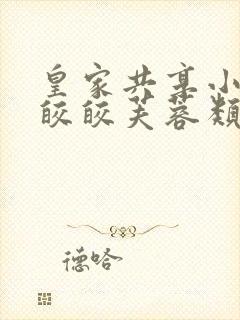 皇家共享小
皎皎芙蓉颜
德哈